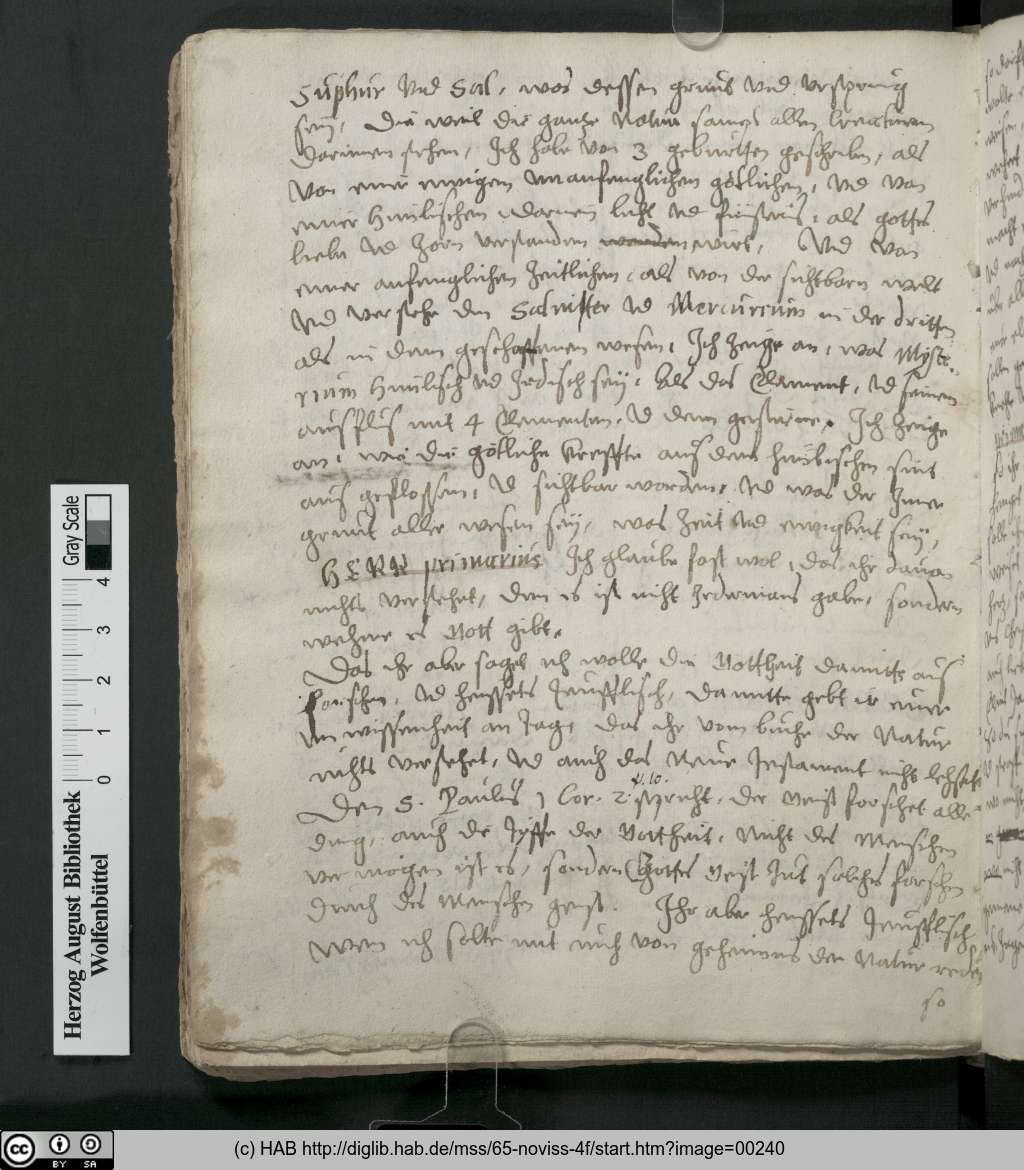 Sulphur Vnd Sal, was dessen grund Vnd Vrsprung
sey, Die weil die gantze Natur sampt allen Creaturen
darinnen stehen, Ich habe von 3 geburtten geschriben, als
Von einer ewigen unanfenglichen götlichen, Vnd Von
einer Himlischen darinen licht Vnd finsternis, als gottes
liebe Vnd Zorn verstanden wirt, Vnd Von
einer anfenglichen Zeitlichen, als von der sichtbarn welt
Vnd verstehe den Salnitter Vnd Mercurium in der dritten
als in dem geschaffenen wesen, Ich Zeige an, was Myste¬
rium Himlisch Vnd Irdisch sey, Als das Element, Vnd seinen
ausflus mit 4 Elementen, Vnd dem gestirne, Ich Zeige
an, wie die götliche kreffte aus dem himlischen sint
aus geflossen, Vnd sichtbar worden, Vnd was der Inner
grunt aller wesen sey, was Zeit Vnd ewigkeit sey,
HERR primarius Ich glaube fast wol, das ihr davon
nichts verstehet, den es ist nicht Jedermans gabe, sondern
welchme es Gott gibt,
Das ihr aber saget ich wolle die Gottheit damitte aus
forschen, Vnd heissets Teufflisch, damitte gebt ir euer
unwissenheit an Tage, das ihr vom buche der Natur
nichts verstehet, Vnd auch das Neue Testament nicht lehset,
v. 10.
Den S. Paulus 1 Cor. 2. spricht, der Geist forschet alle
ding, auch die Tyffe der Gottheit, Nicht des Menschen
vermögen ist es, sondern Gottes Geist Tut solches forschen
Durch des Menschen geist. Ihr aber heissets Teufflisch
Wen ich solte mit euch von geheimnus der Natur reden
so
Gray Scale
0 1 2 3 4
Herzog August Bibliothek
Wolfenbüttel
cc BY SA
(c) HAB http://diglib.hab.de/mss/65-noviss-4f/start.htm?image=00240